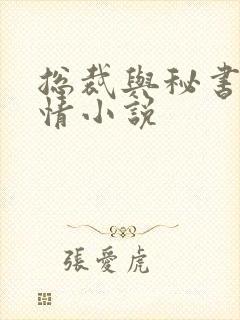 總裁與秘書
情小說
張愛虎